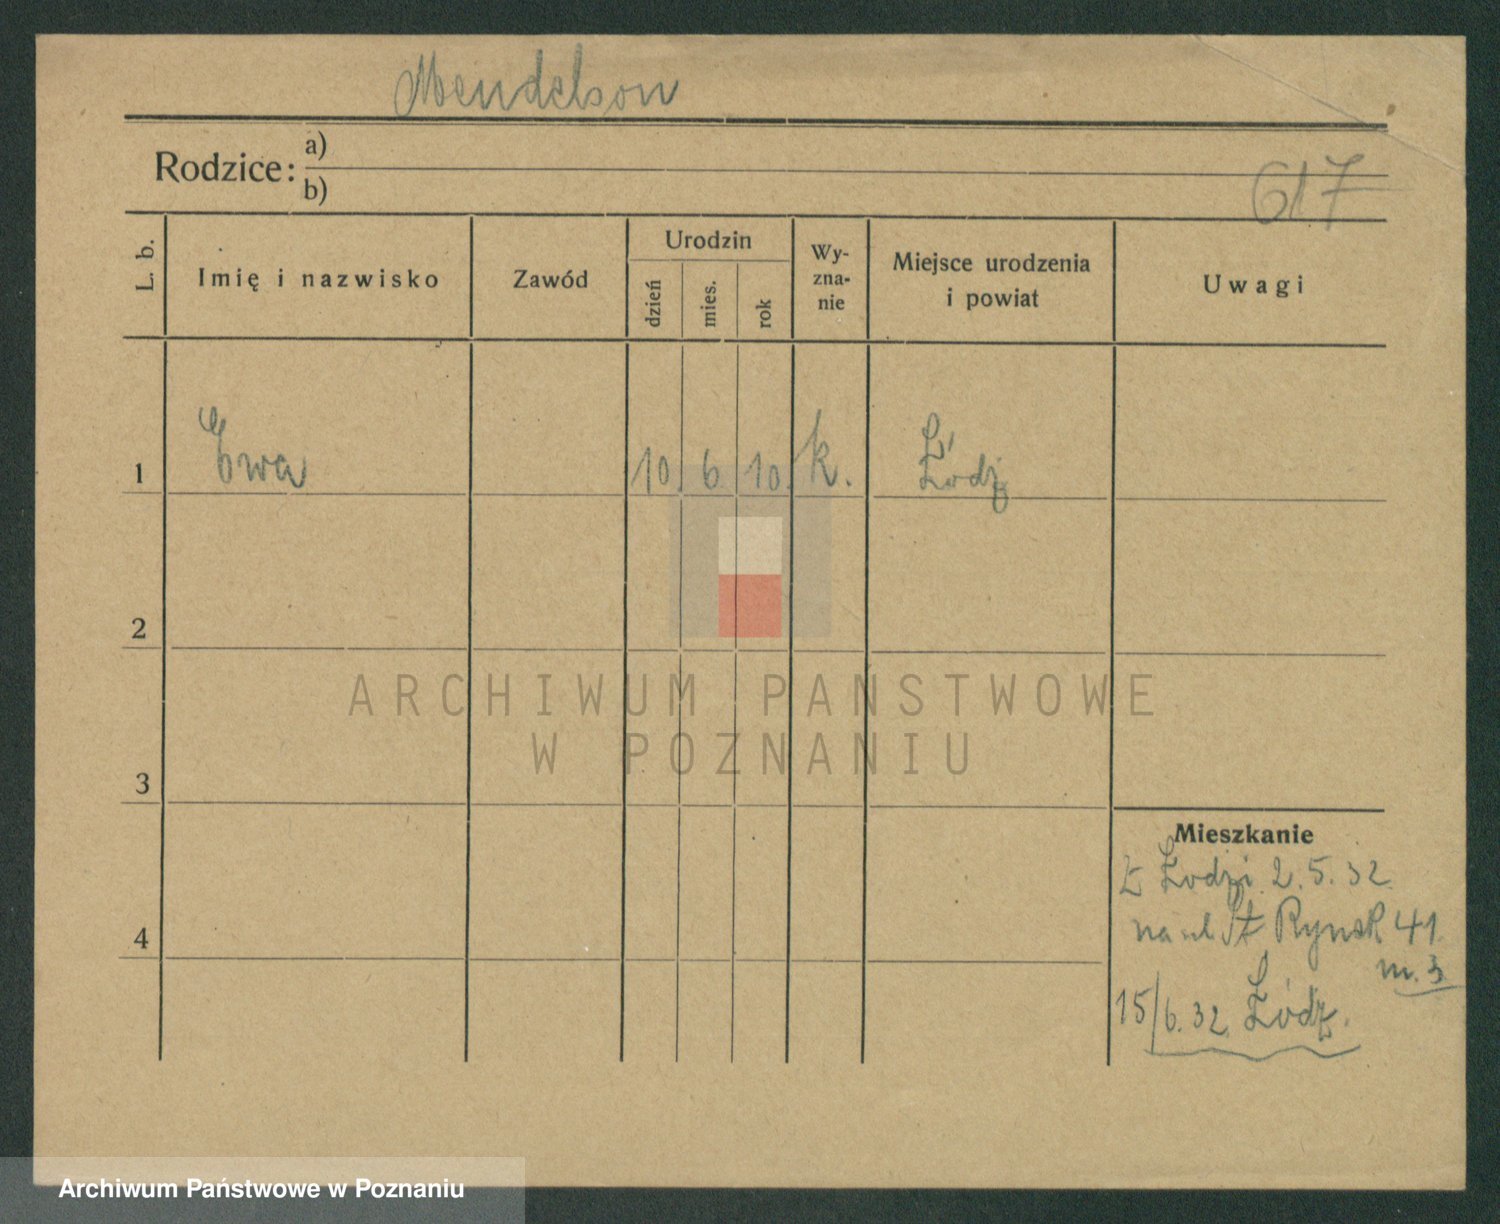 Mendelson
Rodzice: a)
b)
617
L. b.
Imię i nazwisko
Zawód
Urodzin
dzień
mies.
rok
Wy-
zna-
nie
Miejsce urodzenia
i powiat
Uwagi
1 Ewa 10 6 10. k. Łódź
2
3
4
Mieszkanie
z Łodzi 2.5.32
na ul St Rynek 41.
m. 3
15/6.32 Łódź.
ARCHIWUM PAŃSTWOWE
W POZNANIU
Archiwum Państwowe w Poznaniu